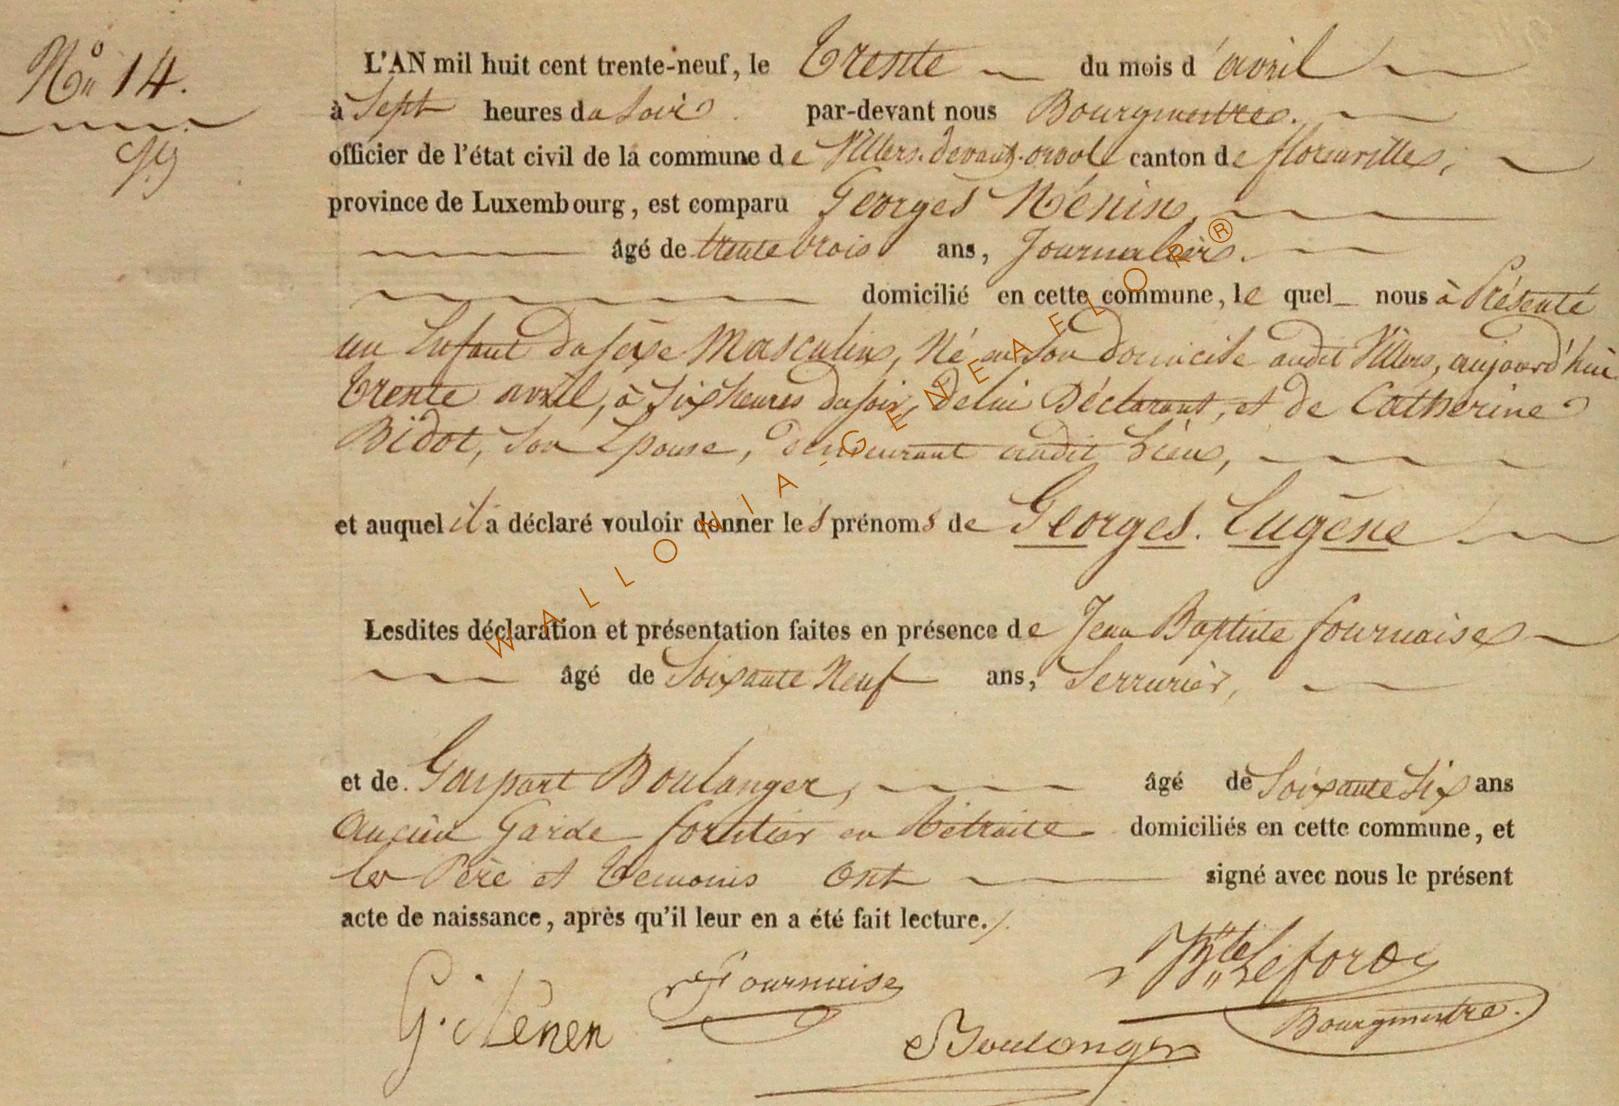 No 14.
L'AN mil huit cent trente-neuf, le Trente du mois d'avril
à Sept heures du Soir par-devant nous Bourgmestre.
officier de l'état civil de la commune de Villers-devant-orval canton de florenville,
province de Luxembourg, est comparu Georges Nénin,
âgé de trente trois ans, Journalier.
domicilié en cette commune, le quel nous à Présenté
un Enfant du sexe Masculin, Né en Son domicile audit Villers, aujourd'hui
Trente avril, à Six heures du soir, de lui Déclarant, et de Catherine
Bidot, Son Epouse, demeurant audit Lieu,
et auquel il a déclaré vouloir donner les prénoms de Georges. Eugène
Lesdites déclaration et présentation faites en présence de Jean Baptiste fournaise
âgé de Soixante Neuf ans, Serrurier,
et de Gaspart Boulanger, âgé de Soixante Six ans
Ancien Garde forestier en Retraite domiciliés en cette commune, et
les Père et Témoins Ont signé avec nous le présent
acte de naissance, après qu'il leur en a été fait lecture./.
G. Nenen Fournaise Bte Leforo
Boulanger Bourgmestre.
WALLONIA-GENEAELOR®